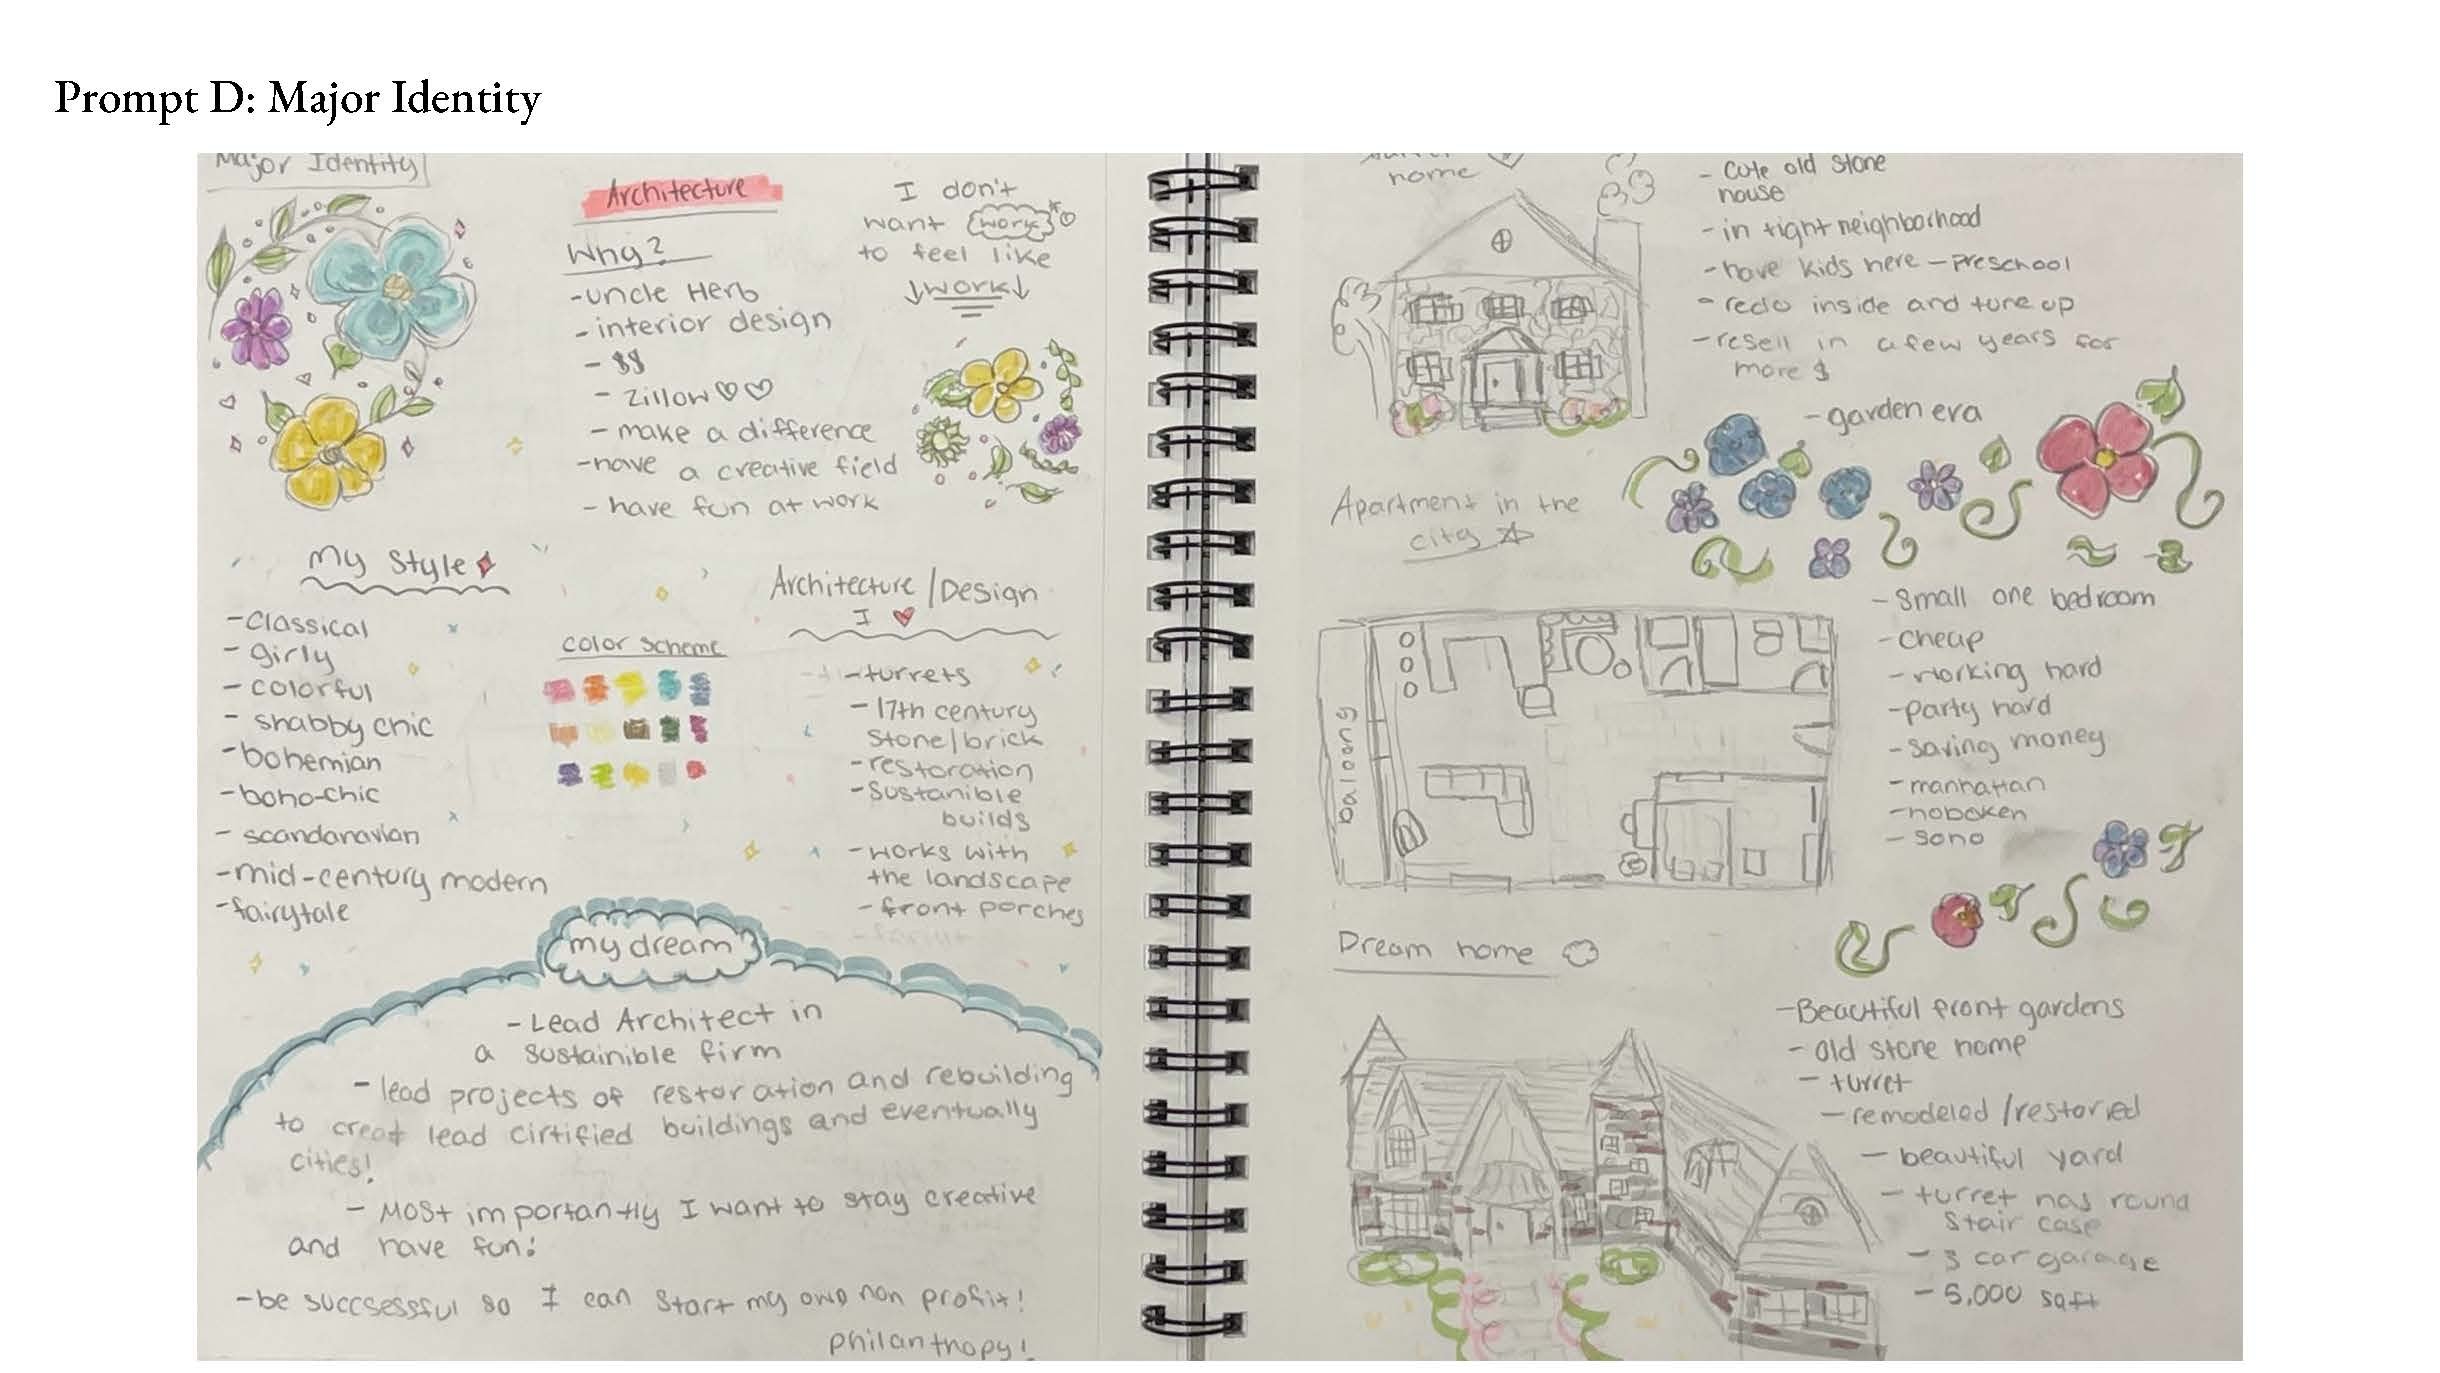 Prompt D: Major Identity
Major Identity
Architecture
Why?
-uncle Herb
-interior design
- $$
- Zillow♡♡
- make a difference
-have a creative field
- have fun at work
I don't
want work
to feel like
↓work↓
My Style
-classical
- girly
- colorful
- shabby chic
-bohemian
-boho-chic
- scandanavian
-mid-century modern
-fairytale
color scheme
Architecture/Design
I ♥
-turrets
-17th century
stone/brick
-restoration
-sustanible
builds
-works with
the landscape
-front porches
my dream
-Lead Architect in
a sustainible firm
-lead projects of restoration and rebuilding
to creat lead cirtified buildings and eventually
cities!
- Most importantly I want to stay creative
and have fun!
-be succsessful so I can start my own non profit!
philanthopy!
home
- cute old stone
house
-in tight neighborhood
-have kids here - preschool
- redo inside and tune up
-resell in a few years for
more $
-garden era
Apartment in the
city ☆
balcony
-small one bedroom
-cheap
-working hard
-party hard
-saving money
-manhattan
-hoboken
-soho
Dream home
-Beautiful front gardens
- old stone home
- turret
-remodeled/restoried
- beautiful yard
- turret has round
stair case
- 3 car garage
- 5,000 sqft